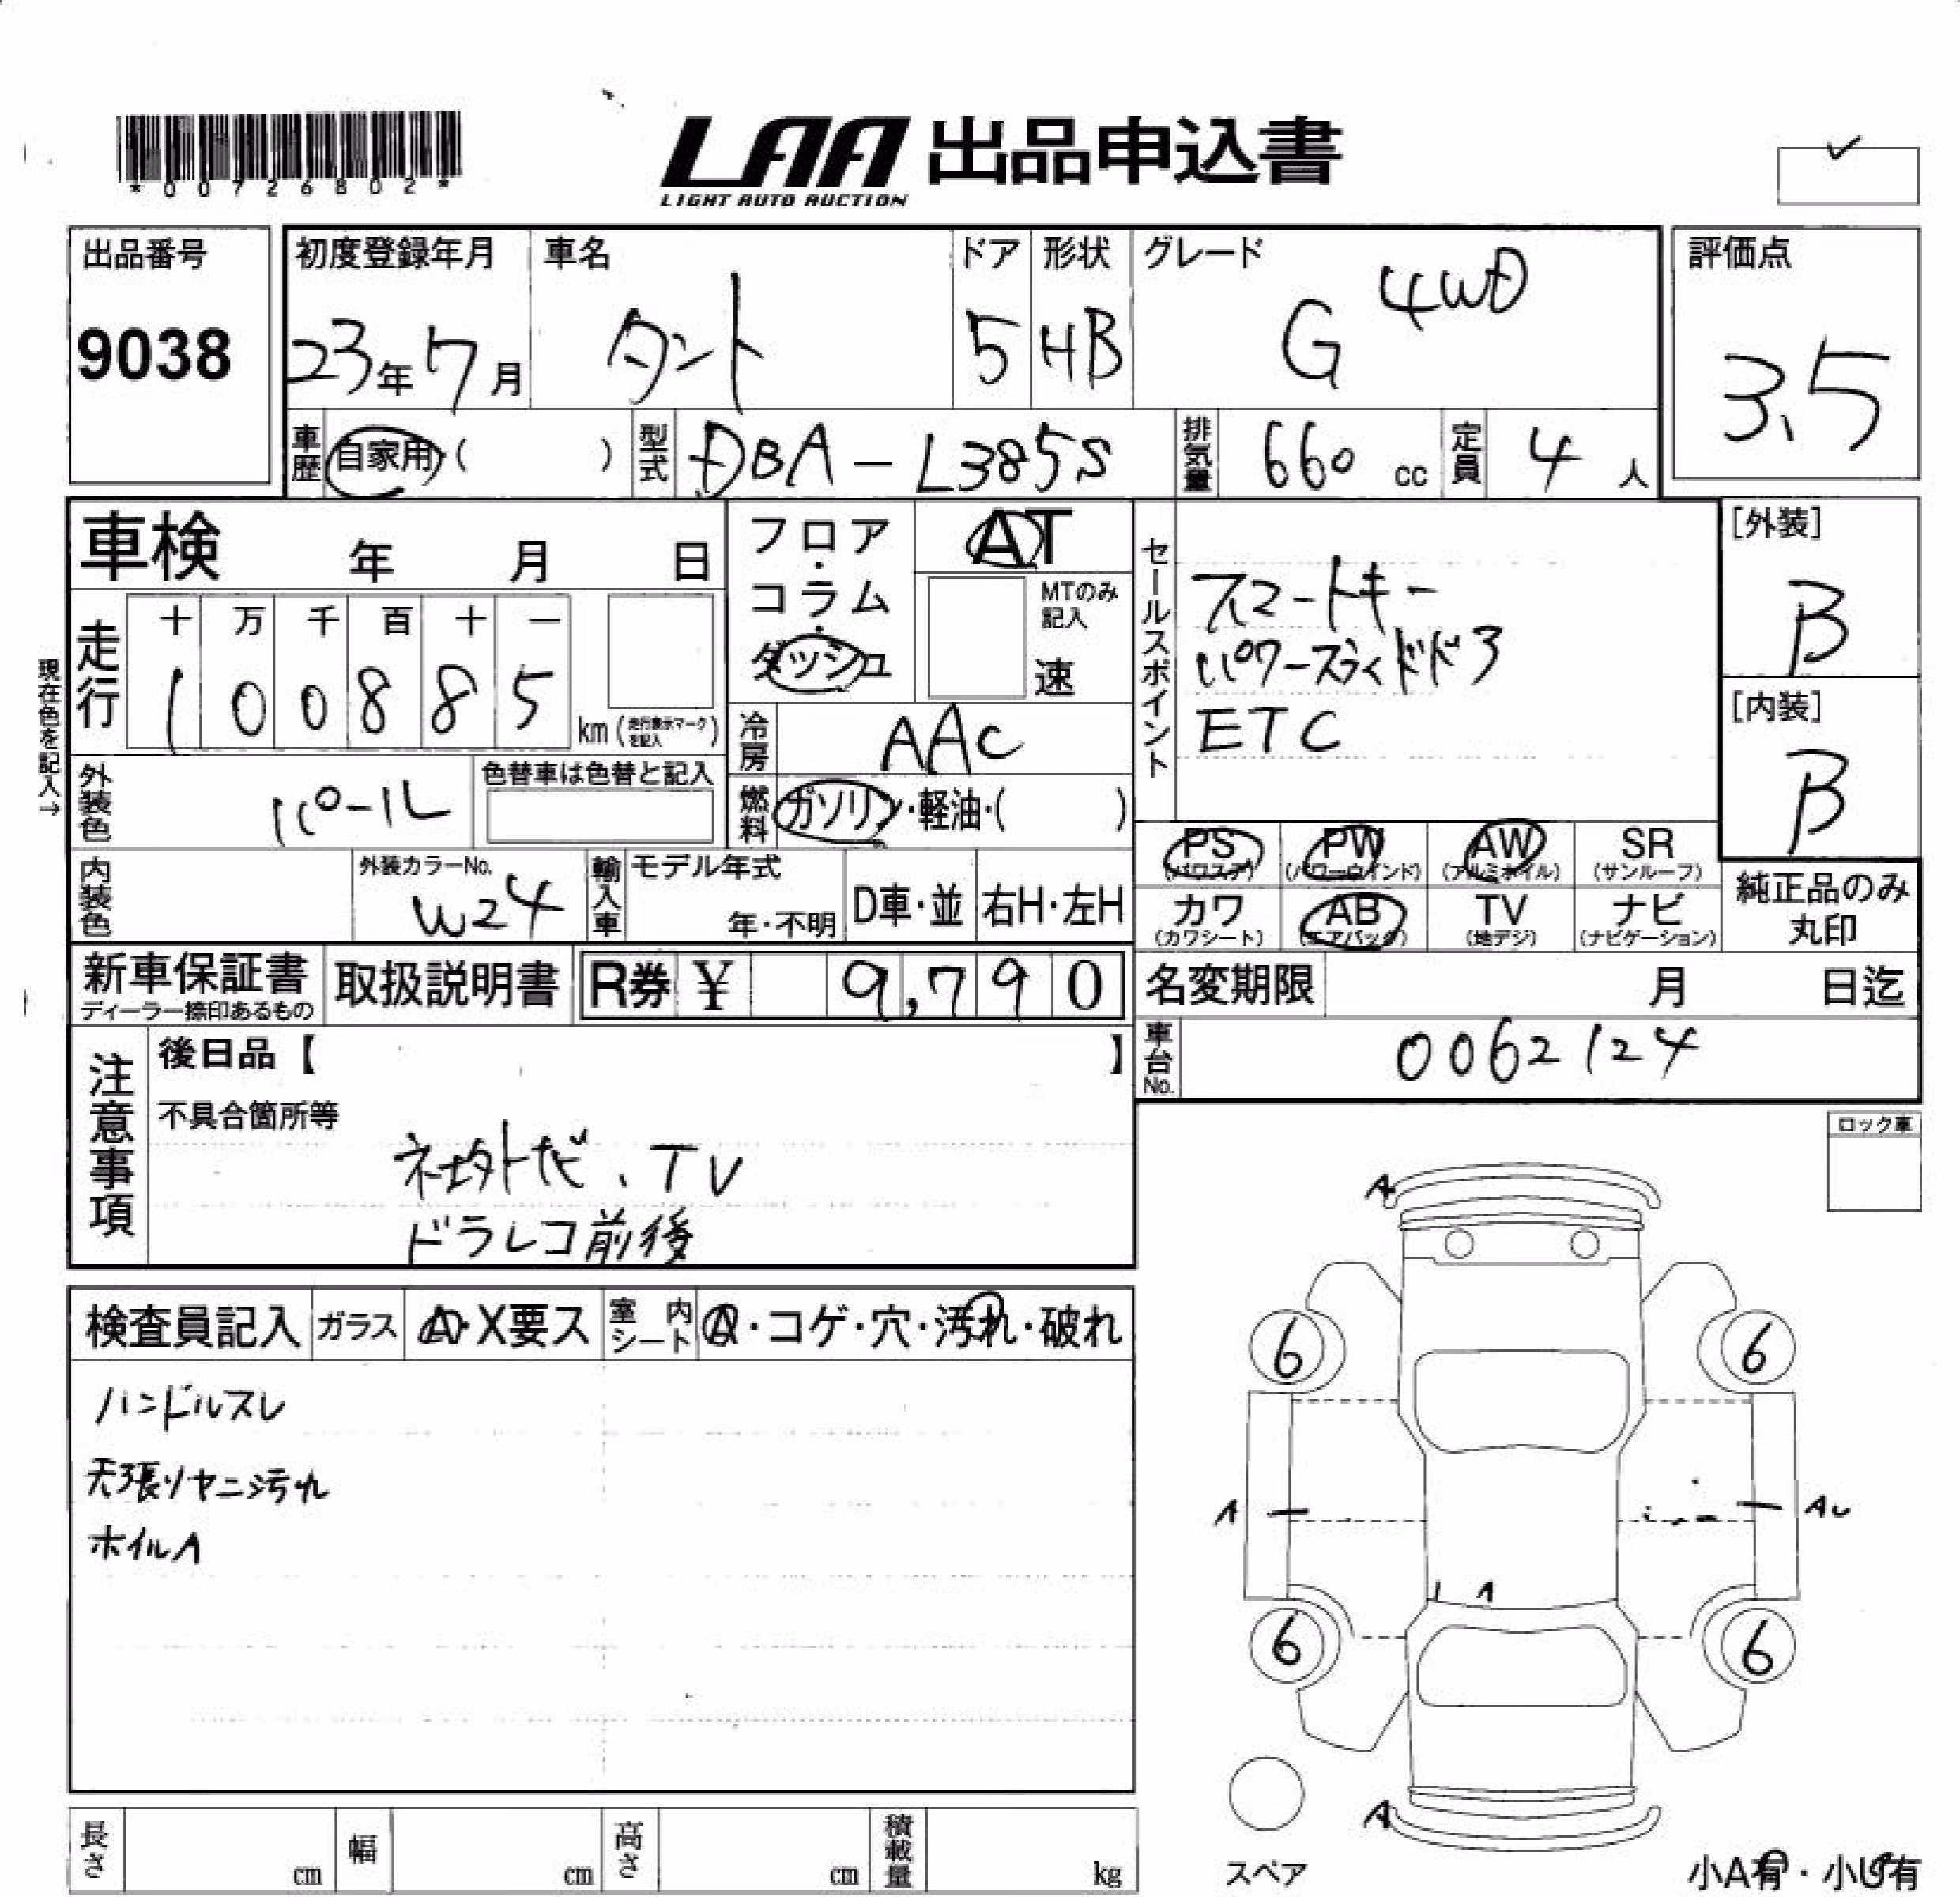 *00726802*
LAA 出品申込書
LIGHT AUTO AUCTION
出品番号
9038
初度登録年月
23年 7月
車名
タント
ドア
5
形状
HB
グレード
G 4WD
評価点
3.5
車歴 自家用 ( )
型式 DBA-L385S
排気量 660 cc
定員 4 人
車検 年 月 日
フロア・コラム・ダッシュ
AT
MTのみ記入
速
走行
十 万 千 百 十 一
1 0 0 8 8 5
km (走行表示マークを記入)
現在色を記入→
冷房 AAC
外装色 パール
色替車は色替と記入
燃料 ガソリン・軽油・( )
内装色
外装カラーNo.
W24
輸入車
モデル年式
年・不明
D車・並
右H・左H
セールスポイント
スマートキー
パワースライドドア
ETC
[外装]
B
[内装]
B
PS (パワステ)
PW (パワーウインド)
AW (アルミホイル)
SR (サンルーフ)
カワ (カワシート)
AB (エアバッグ)
TV (地デジ)
ナビ (ナビゲーション)
純正品のみ
丸印
新車保証書
ディーラー捺印あるもの
取扱説明書
R券 ¥ 9,790
名変期限 月 日迄
車台No. 0062124
注意事項
後日品【 】
不具合箇所等
ネ土外ナビ、TV
ドラレコ前後
ロック車
検査員記入
ガラス A・X要ス
室内シート A・コゲ・穴・汚れ・破れ
ハンドルスレ
天張りヤニ汚れ
ホイルA
A
6 6
A AU
A
6 6
A
スペア
小A有・小U有
長さ cm
幅 cm
高さ cm
積載量 kg